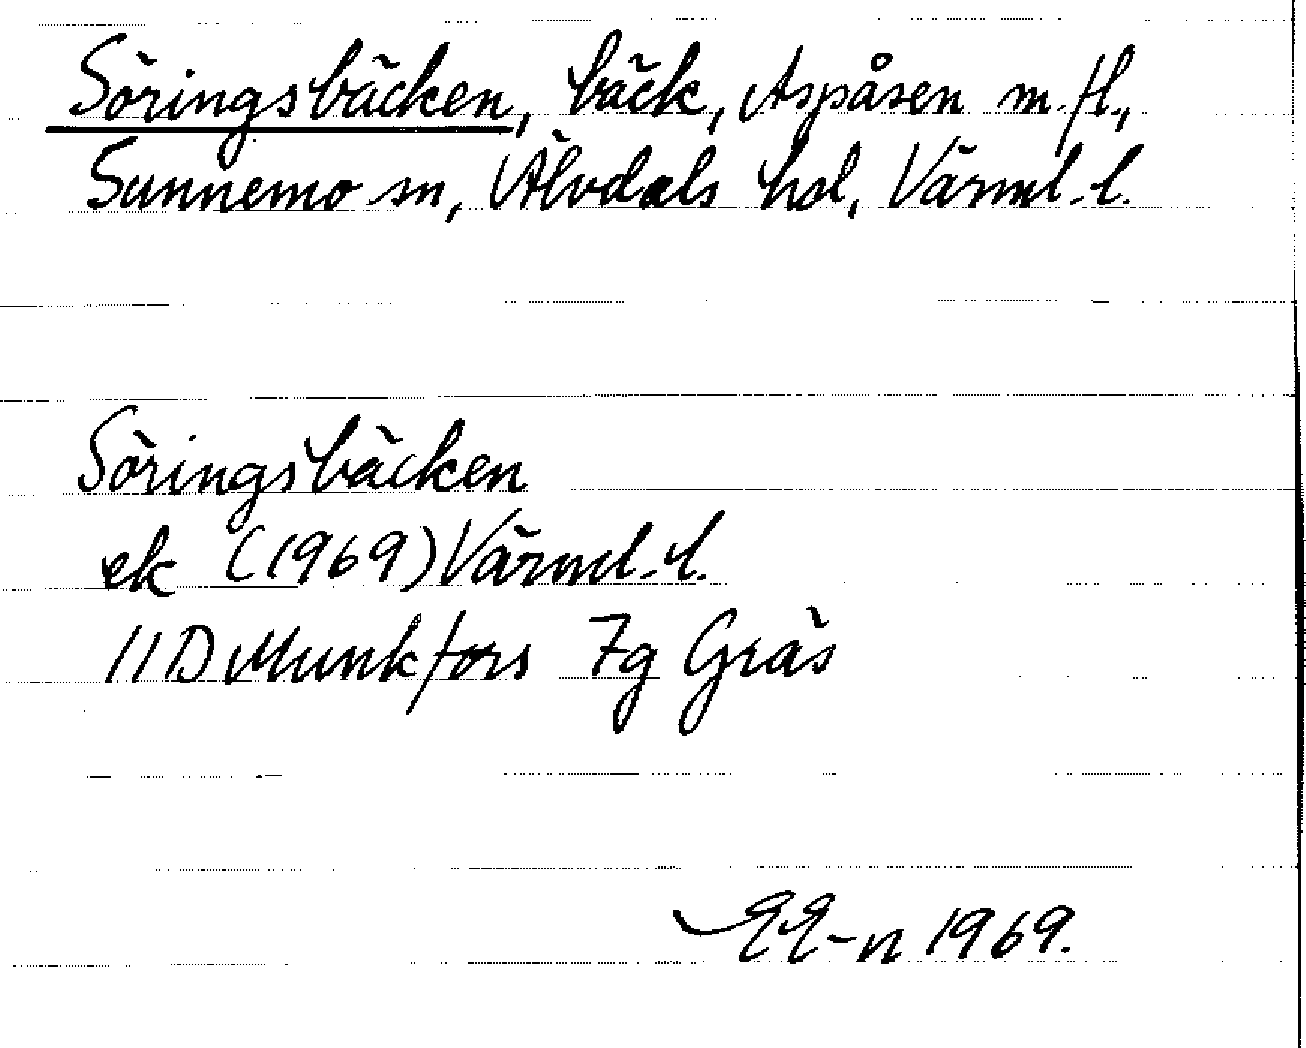 Söringsbäcken, bäck, Aspåsen m. fl.,
Sunnemo sn, Älvdals hd, Värml. l.
Söringsbäcken
ek (1969) Värml. l.
11D Munkfors 7g Gräs
EE-n 1969.